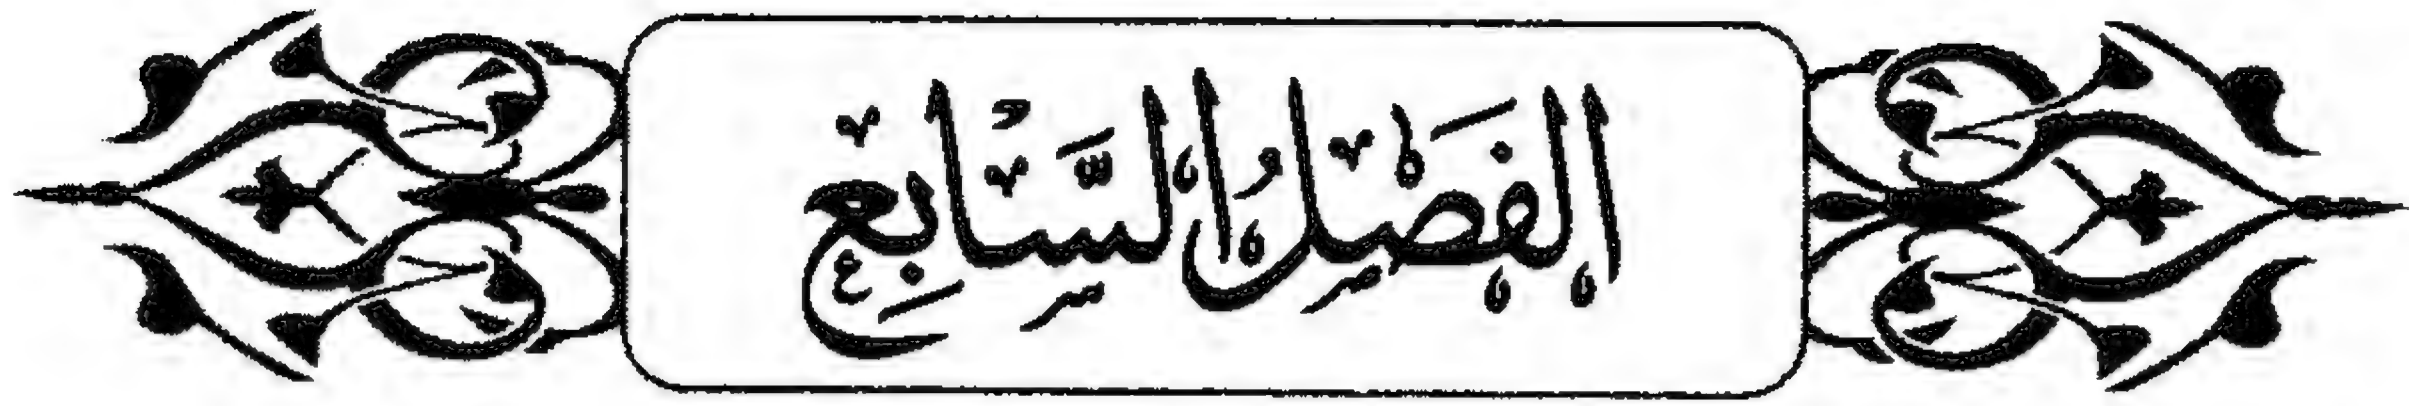 الفَصْلُ السَّابِع